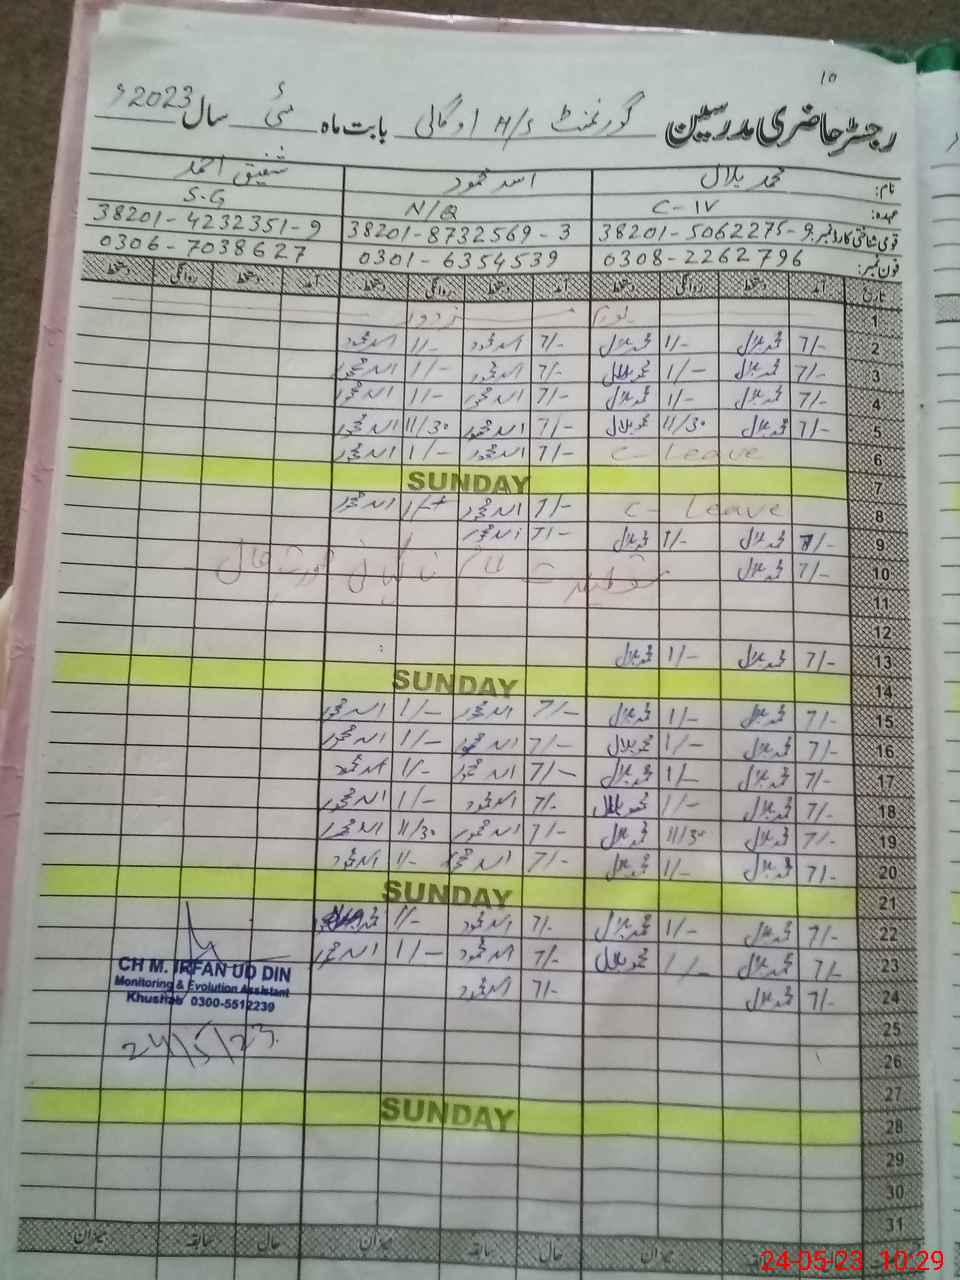 10
رجسٹر حاضری مدرسین گورنمنٹ H/S اوگالی بابت ماہ مئی سال 2023ء
نام: محمد بلال اسد محمود شفیق احمد
عہدہ: C-IV N/Q S.G
قومی شناختی کارڈ نمبر: 38201-5062275-9 38201-8732569-3 38201-4232351-9
فون نمبر: 0308-2262796 0301-6354539 0306-7038627
تاریخ آمد دستخط روانگی دستخط آمد دستخط روانگی دستخط آمد دستخط روانگی دستخط
1 یوم مزدور
2 7/- محمد بلال 1/- محمد بلال 7/- اسد محمود 1/- اسد محمود
3 7/- محمد بلال 1/- محمد بلال 7/- اسد محمود 1/- اسد محمود
4 7/- محمد بلال 1/- محمد بلال 7/- اسد محمود 1/- اسد محمود
5 7/- محمد بلال 11/30 محمد بلال 7/- اسد محمود 11/30 اسد محمود
6 C-Leave 7/- اسد محمود 1/- اسد محمود
7 SUNDAY
8 C-Leave 7/- اسد محمود 1/- اسد محمود
9 7/- محمد بلال 1/- محمد بلال 7/- اسد محمود
10 7/- محمد بلال
11
12
13 7/- محمد بلال 1/- محمد بلال
14 SUNDAY
15 7/- محمد بلال 1/- محمد بلال 7/- اسد محمود 1/- اسد محمود
16 7/- محمد بلال 1/- محمد بلال 7/- اسد محمود 1/- اسد محمود
17 7/- محمد بلال 1/- محمد بلال 7/- اسد محمود 1/- اسد محمود
18 7/- محمد بلال 1/- محمد بلال 7/- اسد محمود 1/- اسد محمود
19 7/- محمد بلال 11/30 محمد بلال 7/- اسد محمود 11/30 اسد محمود
20 7/- محمد بلال 1/- محمد بلال 7/- اسد محمود 1/- اسد محمود
21 SUNDAY
22 7/- محمد بلال 1/- محمد بلال 7/- اسد محمود 1/-
23 7/- محمد بلال 1/- محمد بلال 7/- اسد محمود 1/- اسد محمود
24 7/- محمد بلال 7/- اسد محمود
CH M. IRFAN UD DIN
Monitoring & Evolution Assistant
Khushab 0300-5512239
24/5/23
25
26
27
28 SUNDAY
29
30
31
میزان حال سابقہ میزان حال سابقہ میزان
24-05-23 10:29